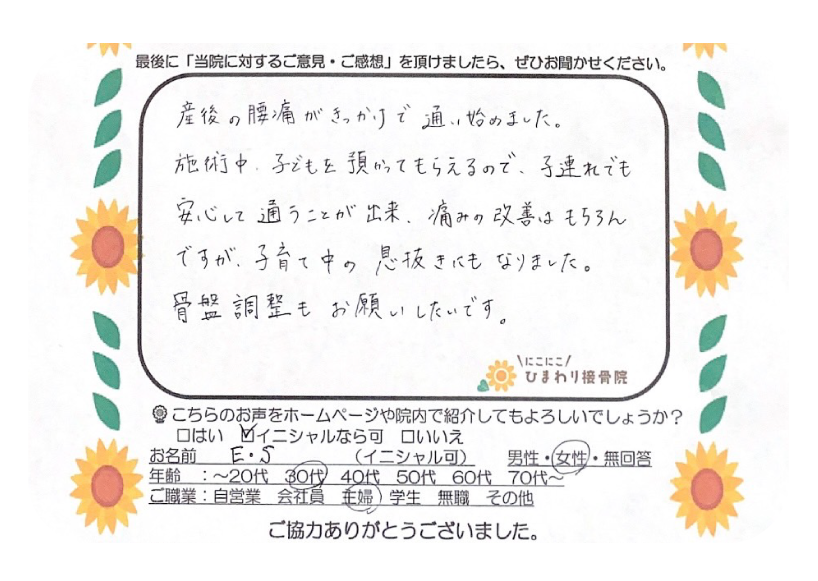 最後に「当院に対するご意見・ご感想」を頂けましたら、ぜひお聞かせください。
産後の腰痛がきっかけで 通い始めました。
施術中、子どもを預かってもらえるので、子連れでも
安心して通うことが出来、痛みの改善はもちろん
ですが、子育て中の息抜きにもなりました。
骨盤調整もお願いしたいです。
\にこにこ/
ひまわり接骨院
こちらのお声をホームページや院内で紹介してもよろしいでしょうか？
□はい ☑イニシャルなら可 □いいえ
お名前 E・S （イニシャル可） 男性・女性・無回答
年齢 ：～20代 30代 40代 50代 60代 70代～
ご職業：自営業 会社員 主婦 学生 無職 その他
ご協力ありがとうございました。